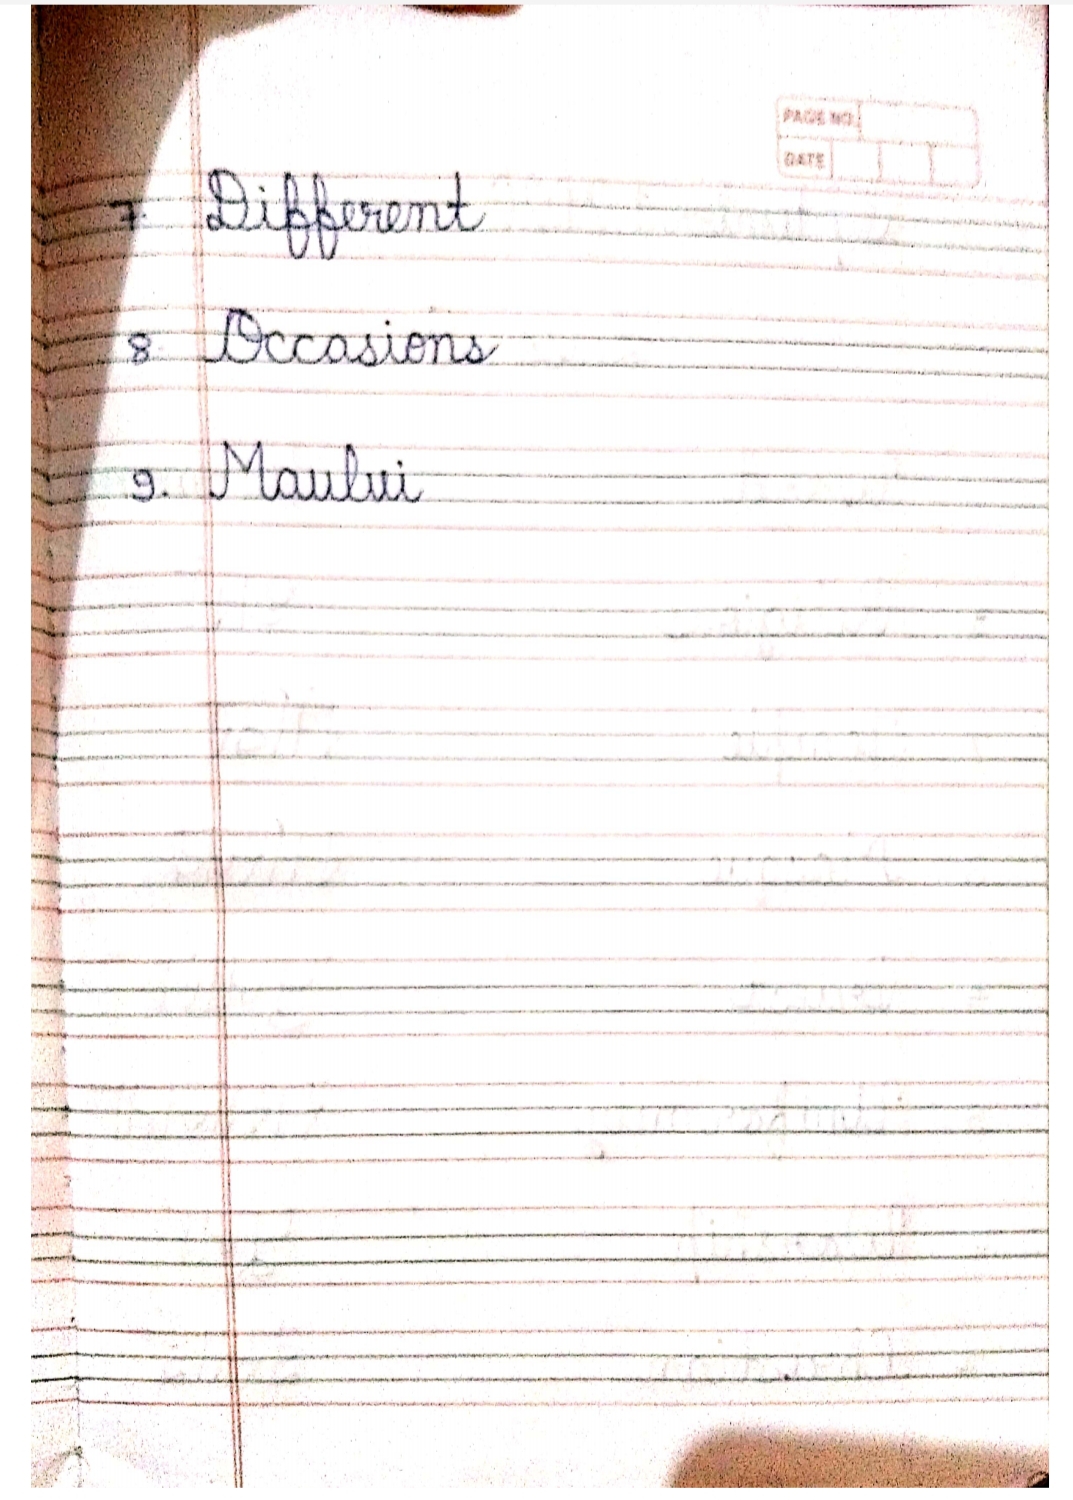 PAGE NO.
DATE
7. Different
8. Occasions
9. Maulvi